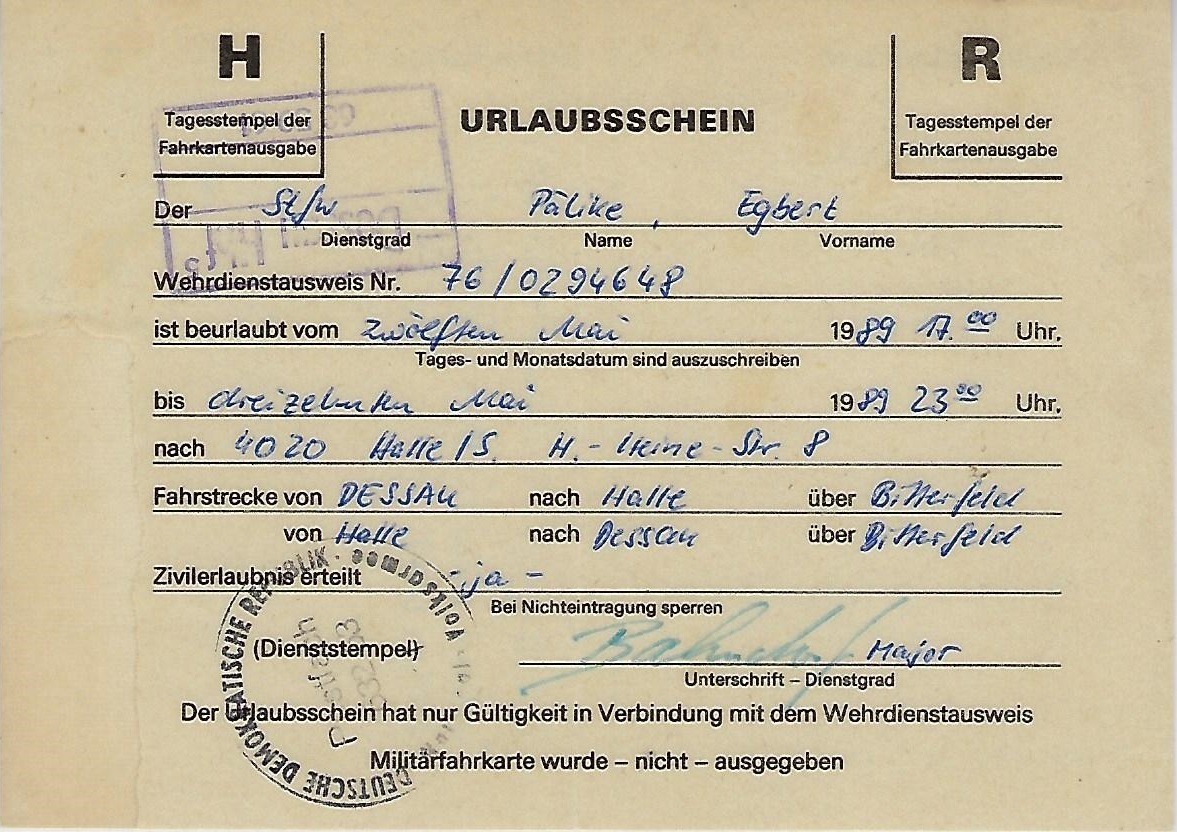 H
R
Tagesstempel der
Fahrkartenausgabe
URLAUBSSCHEIN
Tagesstempel der
Fahrkartenausgabe
Der Stfw Pälike, Egbert
Dienstgrad Name Vorname
Wehrdienstausweis Nr. 76/0294648
ist beurlaubt vom zwölften Mai 1989 17.00 Uhr.
Tages- und Monatsdatum sind auszuschreiben
bis dreizehnten Mai 1989 23.00 Uhr.
nach 4020 Halle/S. H.-Heine-Str. 8
Fahrstrecke von DESSAU nach Halle über Bitterfeld
von Halle nach Dessau über Bitterfeld
Zivilerlaubnis erteilt - ja -
Bei Nichteintragung sperren
(Dienststempel) Major
Unterschrift – Dienstgrad
Der Urlaubsschein hat nur Gültigkeit in Verbindung mit dem Wehrdienstausweis
Militärfahrkarte wurde – nicht – ausgegeben
DEUTSCHE DEMOKRATISCHE REPUBLIK · Volksarmee
Postfach